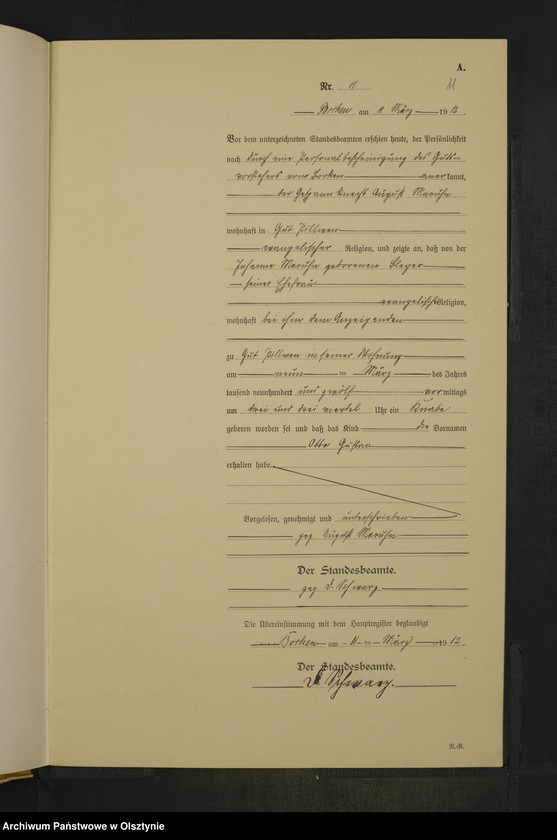 A.
Nr. 11. 11
Borken am 11 März 1912.
Vor dem unterzeichneten Standesbeamten erschien heute, der Persönlichkeit
nach durch eine Personalbescheinigung des Guts-
vorstehers von Borken anerkannt,
der Gespannknecht August Maruhn
wohnhaft in Gut Pillwen
evangelischer Religion, und zeigte an, daß von der
Johanne Maruhn geborenen
seiner Ehefrau
evangelischer Religion,
wohnhaft bei ihm dem Anzeigenden
zu Gut Pillwen in seiner Wohnung
am neun ten März des Jahres
tausend neunhundert und zwölf vormittags
um drei und drei viertel Uhr ein Knabe
geboren worden sei und daß das Kind die Vornamen
Otto Gustav
erhalten habe.
Vorgelesen, genehmigt und unterschrieben
gez. August Maruhn
Der Standesbeamte.
gez. D. Schwarz.
Die Übereinstimmung mit dem Hauptregister beglaubigt
Borken am 11 März 1912.
Der Standesbeamte.
D. Schwarz.
N.-R.
Archiwum Państwowe w Olsztynie